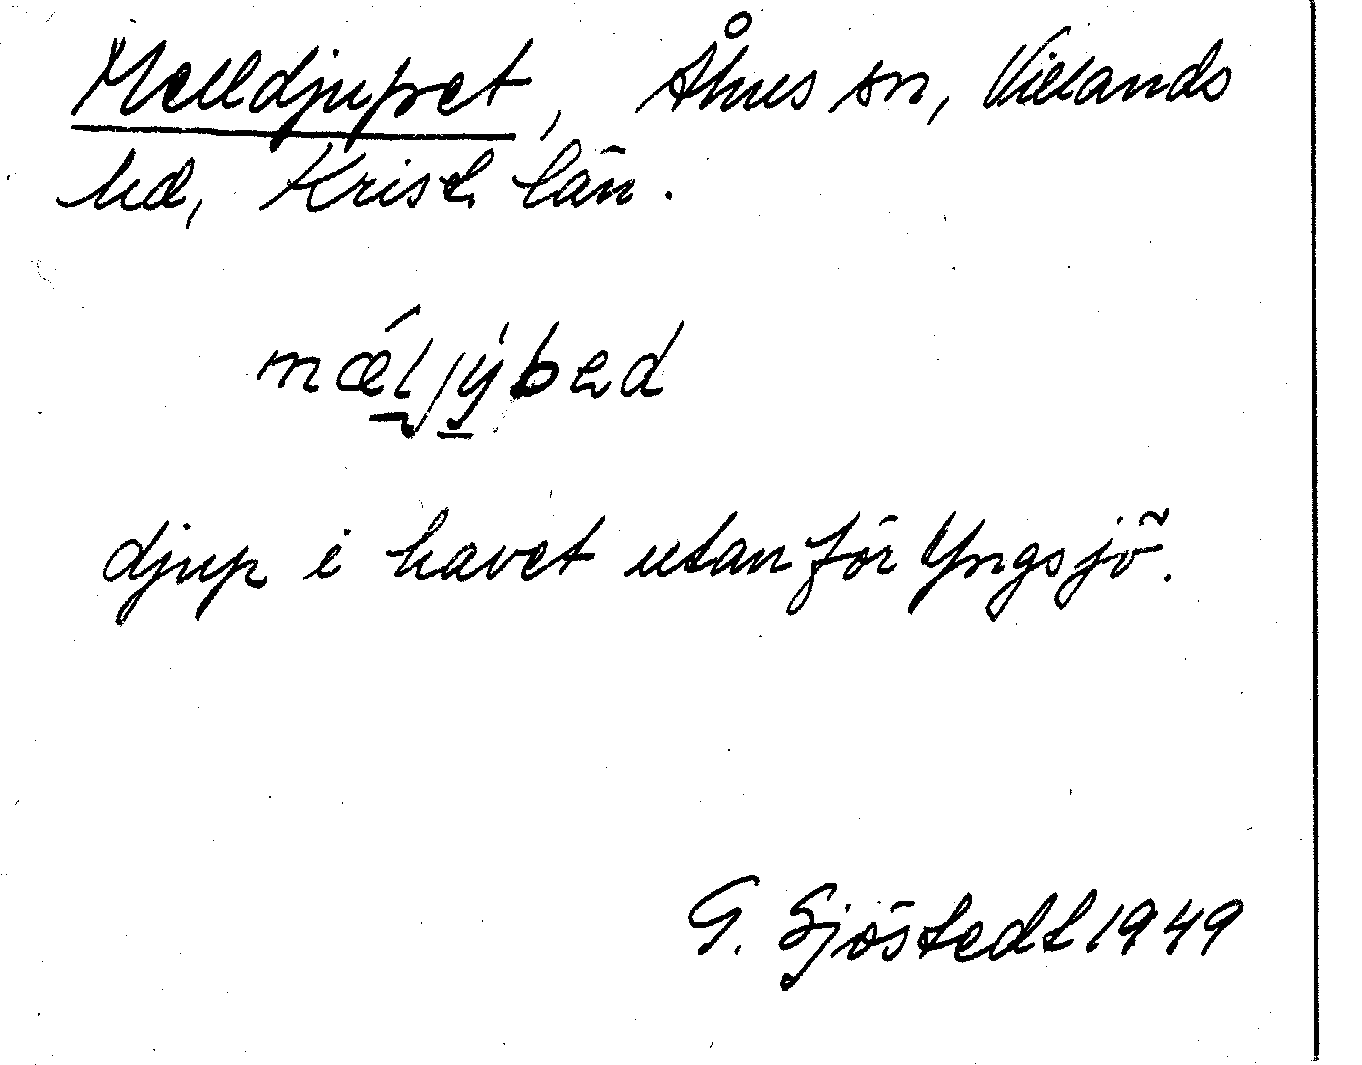 Melldjupet, Åhus sn, Villands
hd, Krist län.
mǽljýbəd
djup i havet utanför Yngsjö.
G. Sjöstedt 1949